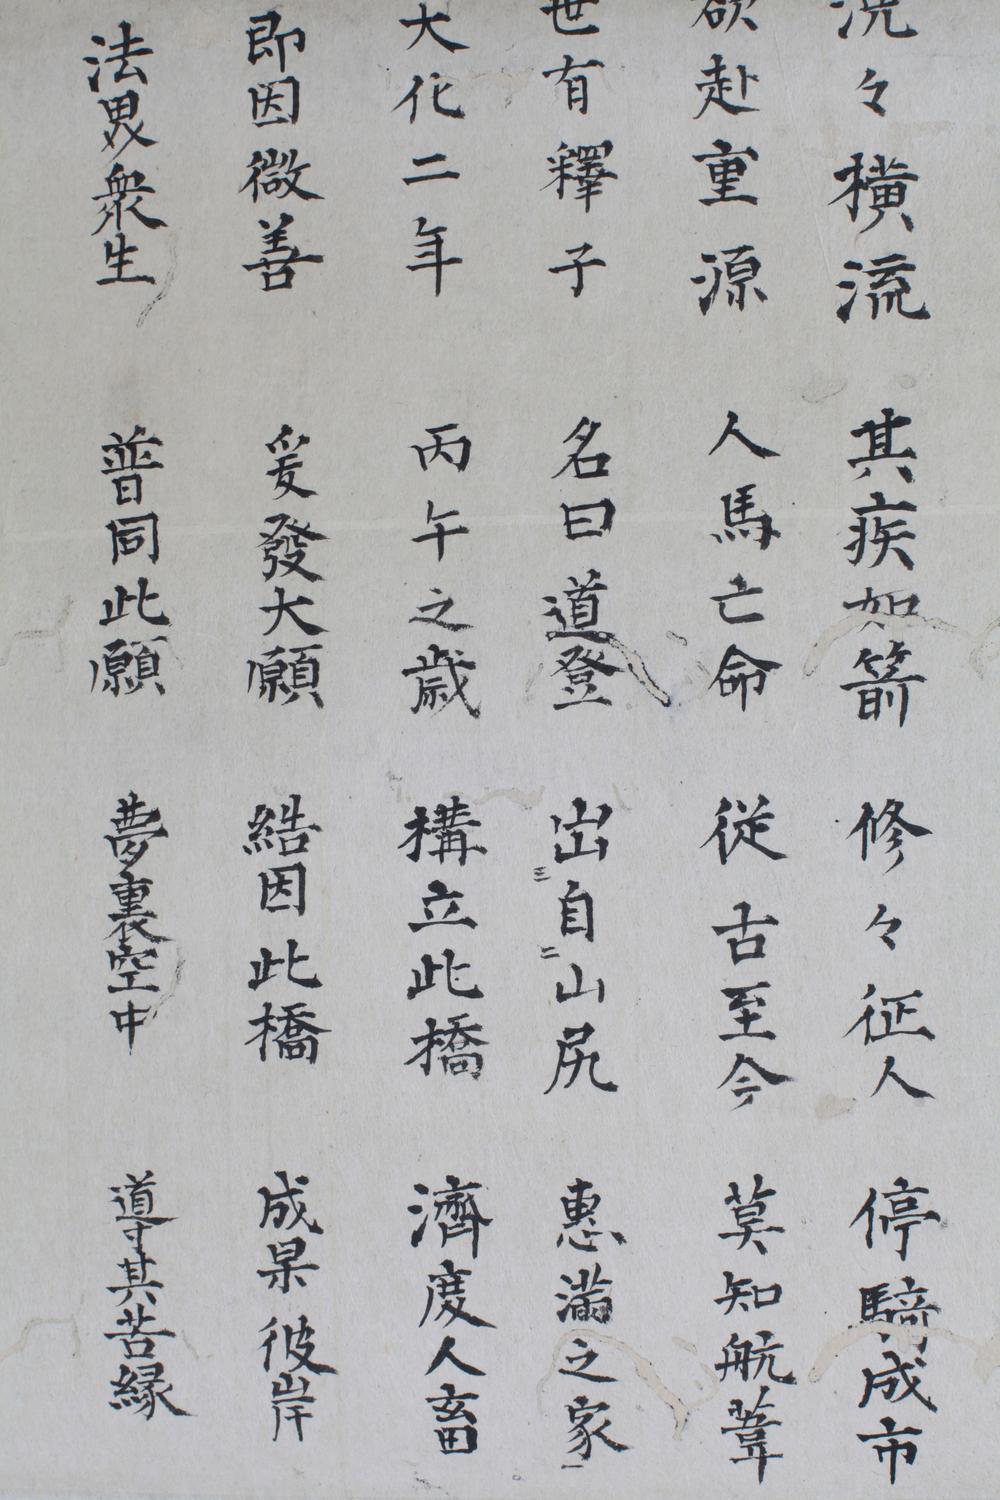 浼々橫流 其疾如箭 修々征人 停騎成市
欲赴重源 人馬亡命 從古至今 莫知航葦
世有釋子 名曰道登 出自山尻 惠滿之家
大化二年 丙午之歳 構立此橋 濟度人畜
即因微善 爰發大願 結因此橋 成果彼岸
法界衆生 普同此願 夢裏空中 導其苦縁